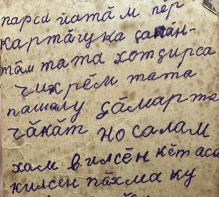 парси йатӑм пӗр
картӑчка даран-
тӑм тата хотдирса
чикрӗм тата
пашалу дӑмарта
чӑкӑт но салам
хам вилсӗн кӗтаса
килсен пӑхма ку